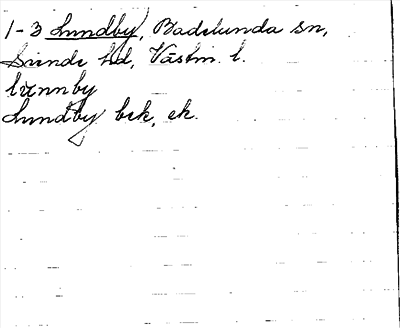 1-3 Lundby, Badelunda sn,
Siende hd, Västm. l.
lunnby
Lundby bek, ek.